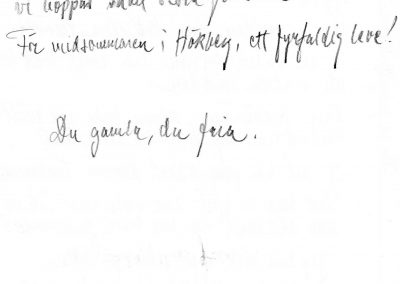 vi hoppas
För midsommaren i Hökberg, ett fyrfaldig leve!
Du gamla, du fria.